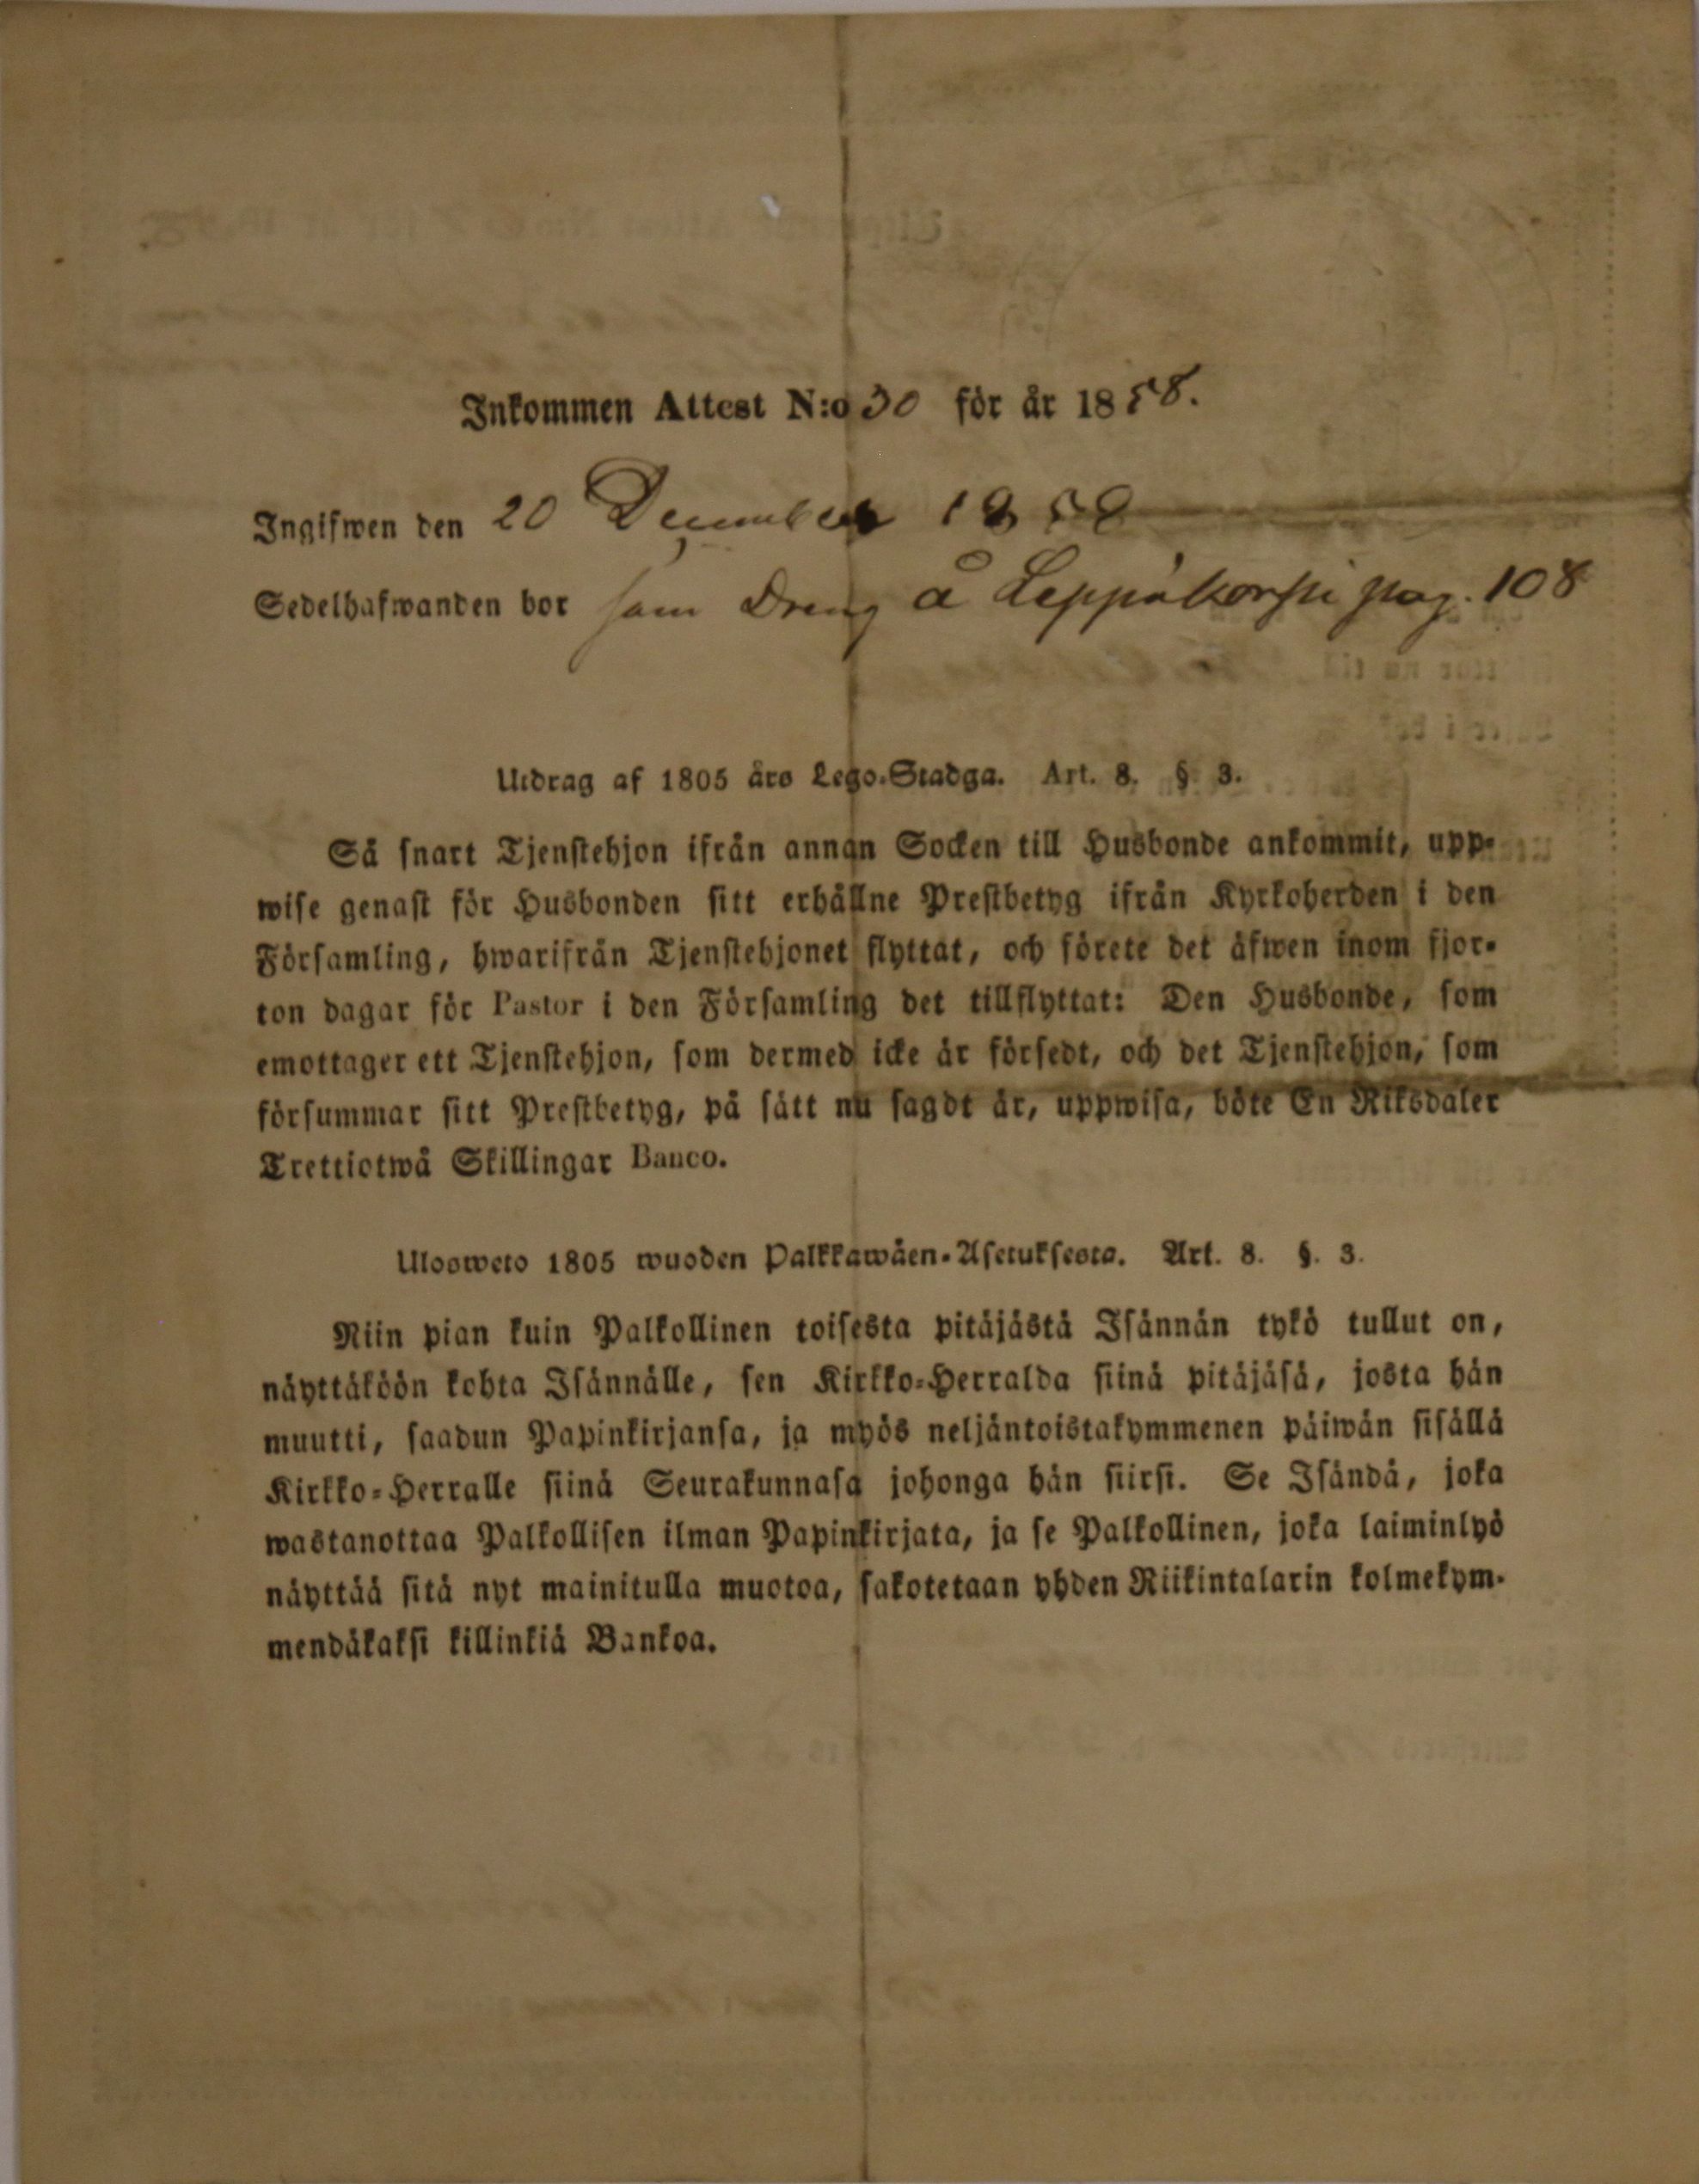 Inkommen Attest N:o 30 för år 1858.
Ingifwen den 20 December 1858
Sedelhafwanden bor som Dreng å Leppäkorpi pag. 108
Utdrag af 1805 års Lego-Stadga. Art. 8. § 3.
Så snart Tjenstehjon ifrån annan Socken till Husbonde ankommit, upp-
wise genast för Husbonden sitt erhållne Prestbetyg ifrån Kyrkoherden i den
Församling, hwarifrån Tjenstehjonet flyttat, och förete det äfwen inom fjor-
ton dagar för Pastor i den Församling det tillflyttat: Den Husbonde, som
emottager ett Tjenstehjon, som dermed icke är försedt, och det Tjenstehjon, som
försummar sitt Prestbetyg, på sätt nu sagdt är, uppwisa, böte En Riksdaler
Trettiotwå Skillingar Banco.
Ulosweto 1805 wuoden Palkkawäen-Asetuksesta. Art. 8. §. 3.
Niin pian kuin Palkollinen toisesta pitäjästä Isännän tykö tullut on,
näyttäköön kohta Isännälle, sen Kirkko-Herralda siinä pitäjäsä, josta hän
muutti, saadun Papinkirjansa, ja myös neljäntoistakymmenen päiwän sisällä
Kirkko-Herralle siinä Seurakunnasa johonga hän siirsi. Se Isändä, joka
wastanottaa Palkollisen ilman Papinkirjata, ja se Palkollinen, joka laiminlyö
näyttää sitä nyt mainitulla muotoa, sakotetaan yhden Riikintalarin kolmekym-
mendäkaksi killinkiä Bankoa.